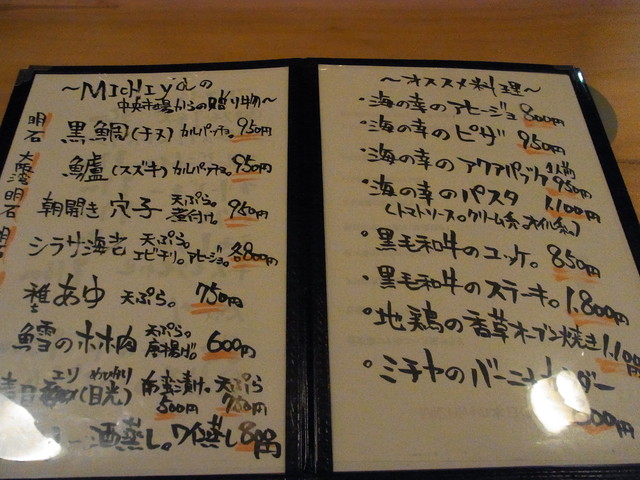 ～MICHIYAの
中央市場からの贈り物～
明石 黒鯛(チヌ) カルパッチョ。 950円
大阪湾 鱸(スズキ) カルパッチョ。 950円
明石 朝開き 穴子 天ぷら。煮付け。 950円
シラサ海老 天ぷら。エビチリ。アヒージョ。 各800円
稚あゆ 天ぷら。 750円
鱈のホホ肉 天ぷら。唐揚げ。 600円
(目光) めひかり 南蛮漬け。 500円 天ぷら 750円
酒蒸し。ワイン蒸し
～オススメ料理～
・海の幸のアヒージョ 800円
・海の幸のピザ 950円
・海の幸のアクアパッツァ 1人前 950円
・海の幸のパスタ 1.100円
(トマトソース。クリーム系。オイル系。)
・黒毛和牛のユッケ。 850円
・黒毛和牛のステーキ。 1.800円
・地鶏の香草オーブン焼き 1.100円
・ミチヤのバーニャ